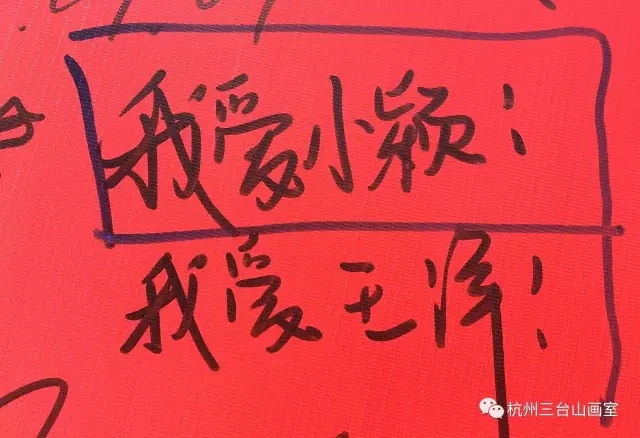 我爱小颖！
我爱王泽！
杭州三台山画室